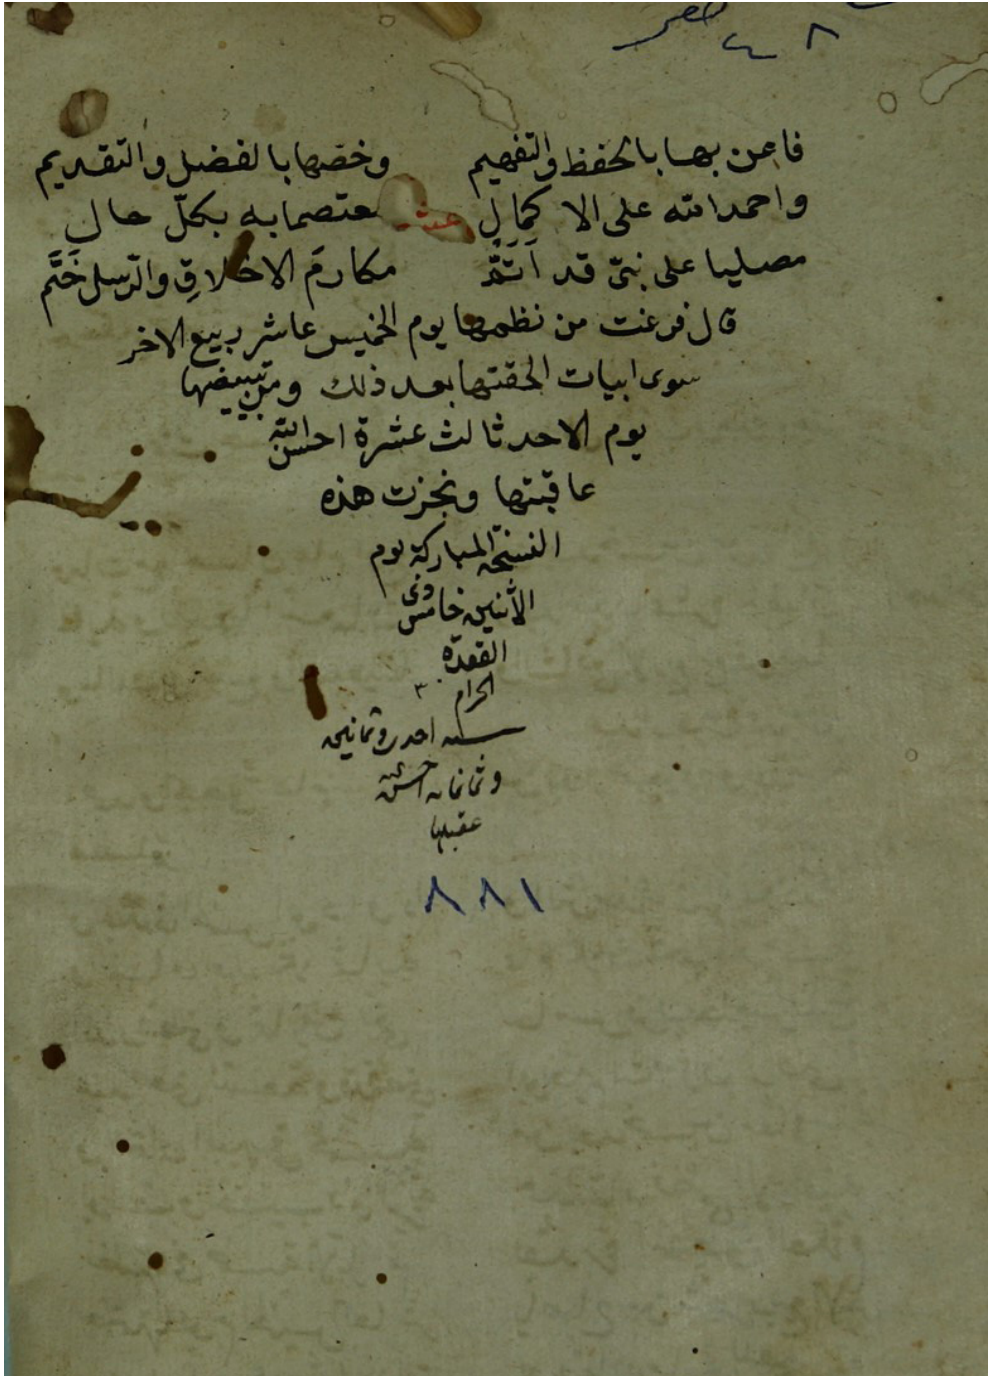 ٤٨
فاعن بها بالحفظ والتفهيم وخصها بالفضل والتقديم
واحمد الله على الاكمال معتصما به بكل حال
مصليا على نبي قد اَتَمَّ مكارمَ الاخلاقِ والرسل خَتَم
قال فرغت من نظمها يوم الخميس عاشر ربيع الاخر
سوى ابيات الحقتها بعد ذلك ومن تبييضها
يوم الاحد ثالث عشرة احسن الله
عاقبتها ونجزت هذه
النسخة المباركة يوم
الاثنين خامس ذي
القعدة
الحرام
سنه احدى وثمانين
وثمانمايه احسن الله
عقبها
٨٨١